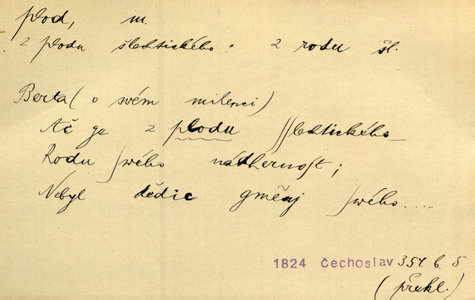 plod, m.
z plodu šlechtického = z rodu šl.
Berta (o svém milenci)
Ač ge z plodu ſſlechtického
Rodu ſwého nádhernoſt;
Nebyl dědic gměnj ſwého ....
1824 Čechoslav 351. b. 5
(překl.)